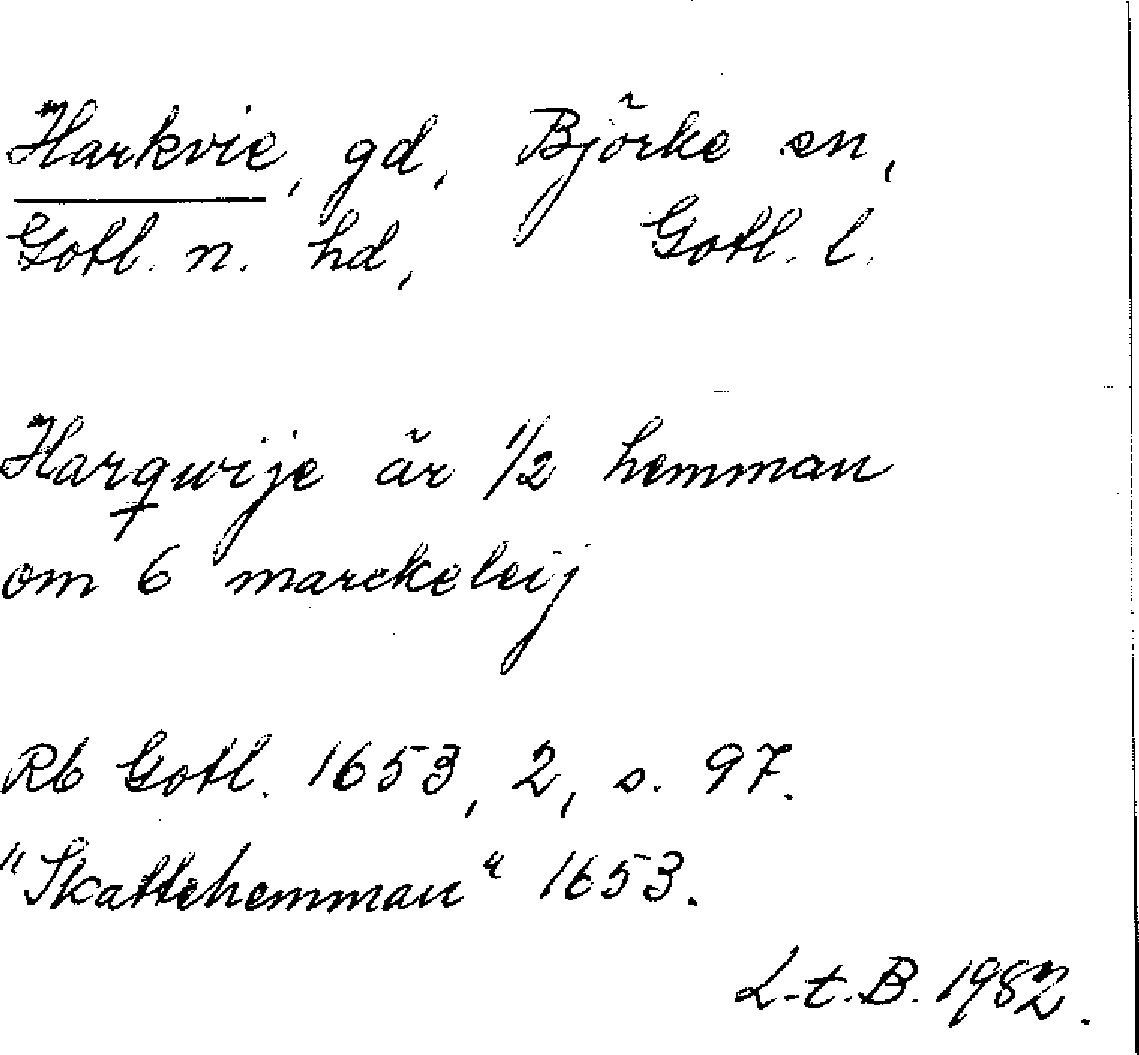 Harkvie, gd, Björke sn,
Gotl. n. hd, Gotl. l.
Harqwije är 1/2 hemman
om 6 marckeleij
Rb Gotl. 1653, 2, s. 97.
"Skattehemman" 1653.
L-t.B. 1982.